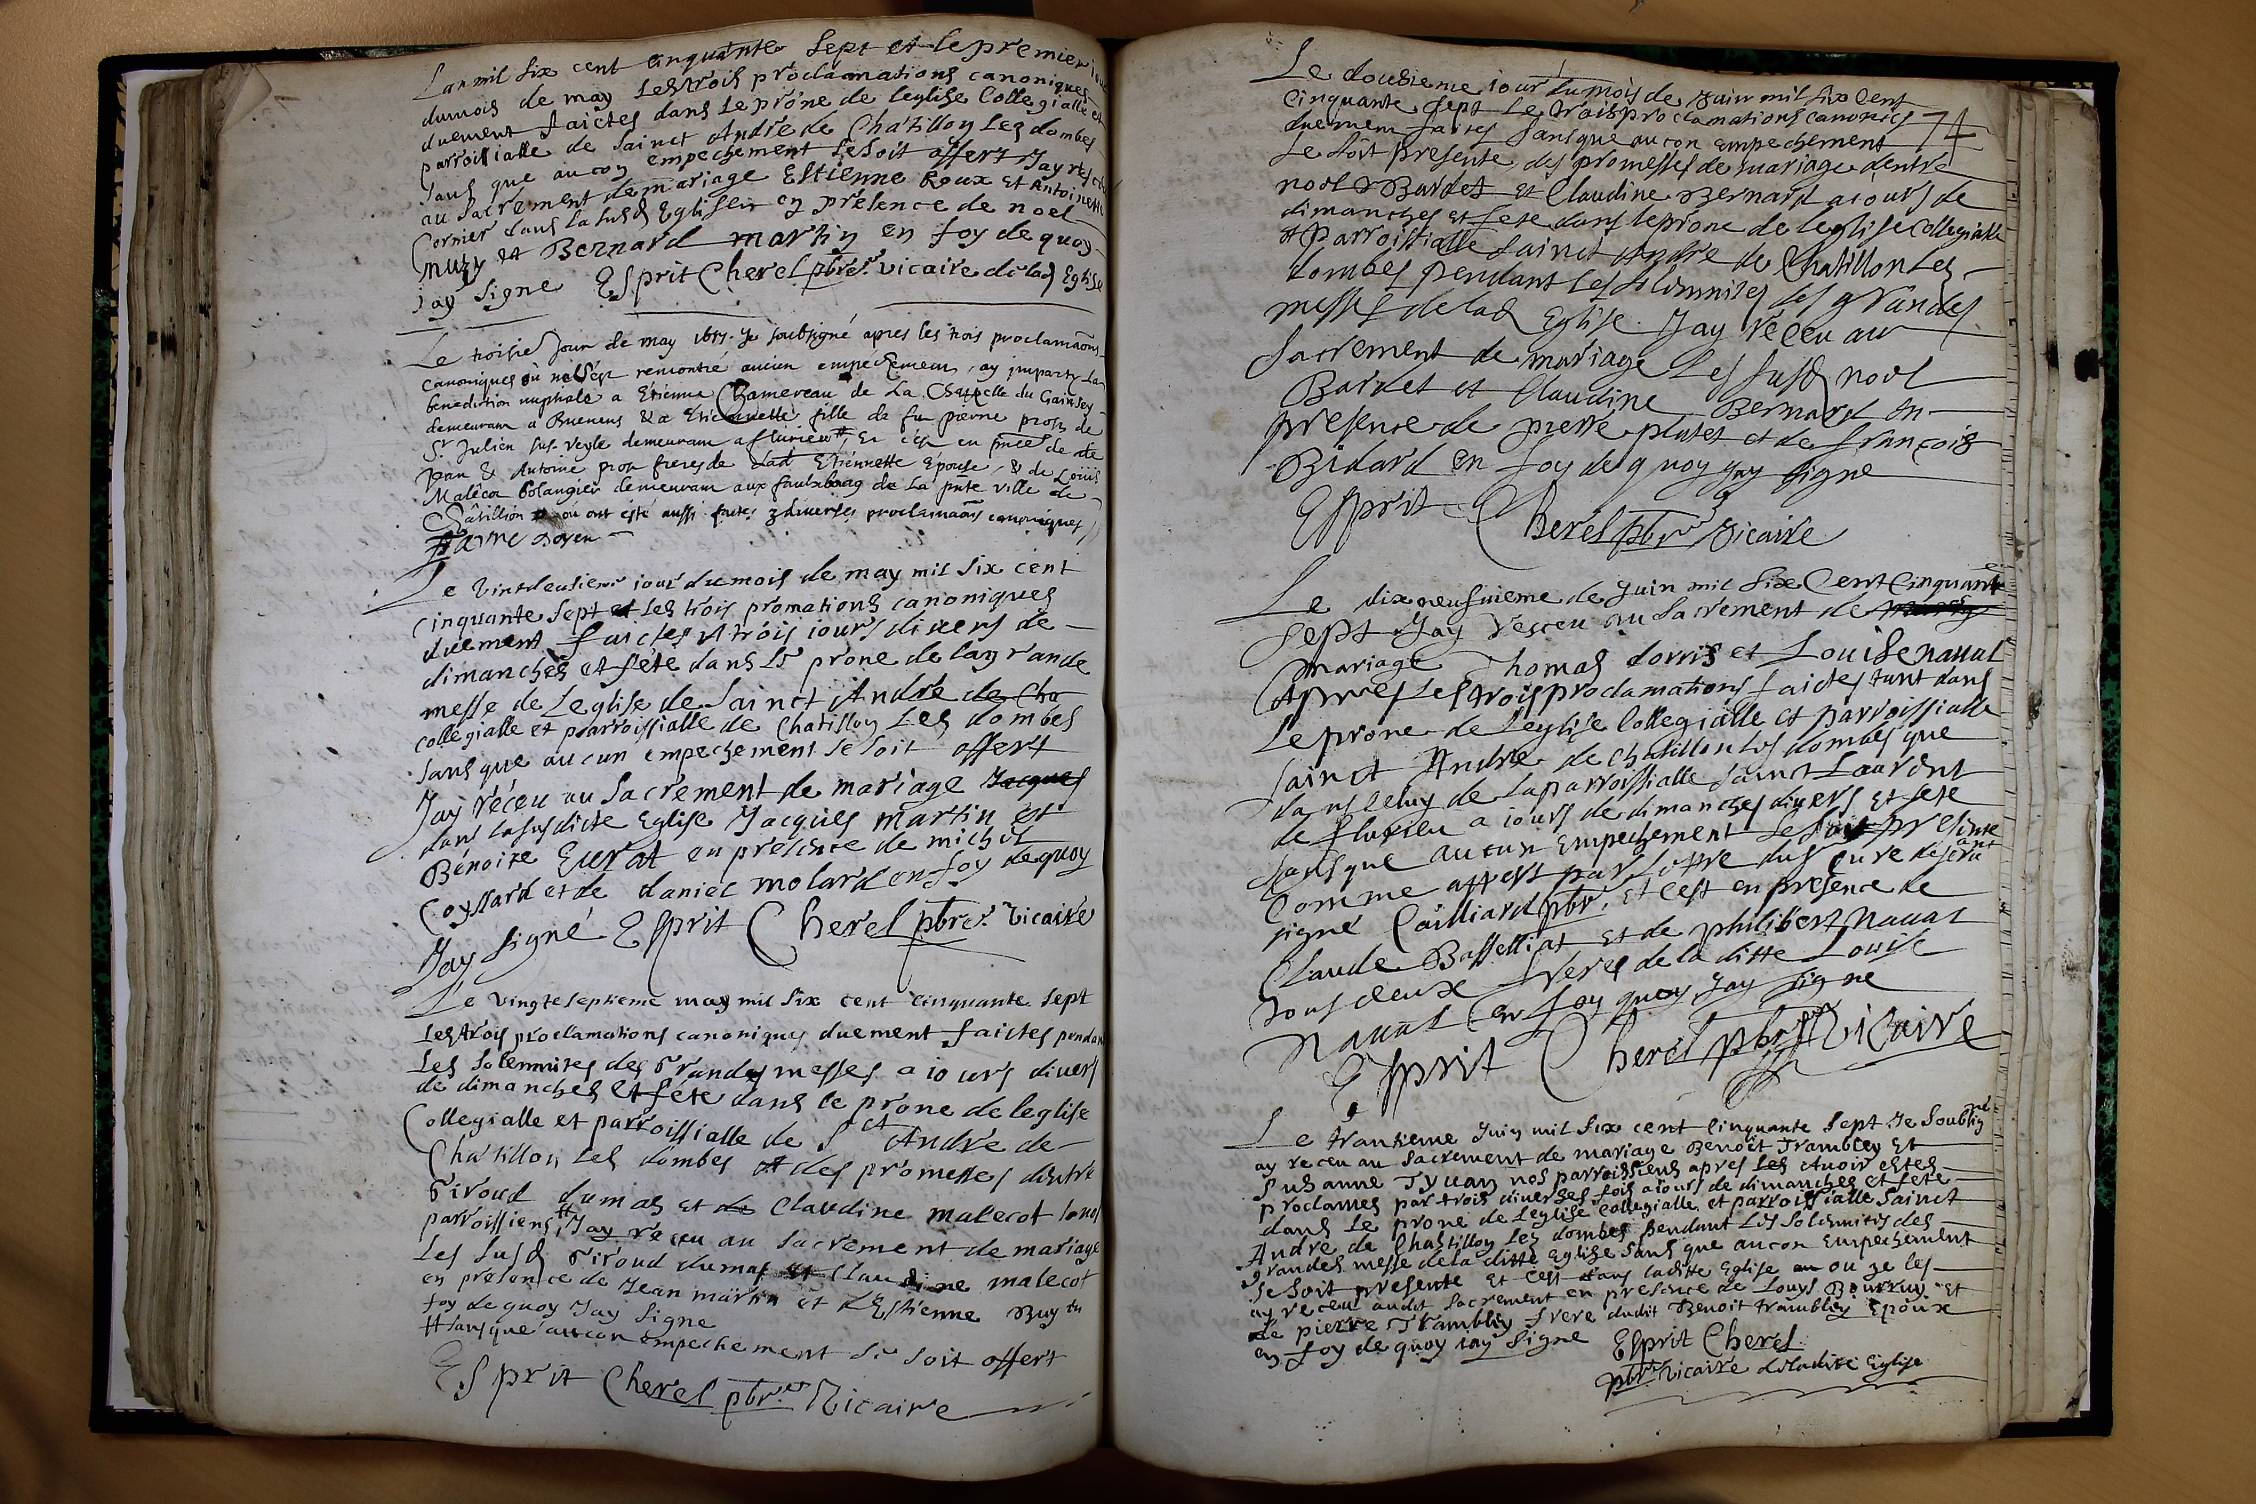 Lan mil six cent cinquante sept et le premier iour
dumois de may Les trois proclamations canoniques
duement faictes dans le prône de leglise Collegialle et
parroissialle de sainct André de Chatillon Les dombes
sans que aucon empechement se soit offert Jay
au sacrement de mariage Estienne Roux Et Antoinette
Cornier dans la susd Eglise en présence de noel
muzy et Bernard martin en foy de quoy
iay signe Esprit Cherel pbre vicaire de lad Eglise
Le troisie Jour de may 1657. Je soubsigné apres les trois proclamaôns
canoniques où ne s'est rencontré aucun empechement, ay imparty La
benediction nuptiale a Etienne Chamereau de La Chapelle du
demeurant a Bueneus & a Etiennette fille de fu pierre prost de
St Julien sus veyle demeurant a flurieu, Et c'est en pnce de
Jean & Antoine freres de Lad Etiennette Epouse, & de Louis
Malêcot bolangier demeurant aux faulxbourg de La pnte ville de
Châtillon ou ont esté aussi faites 3 diverses proclamaôns canoniques
doyen
Le vintdeusieme iour du mois de may mil six cent
cinquante sept et Les trois promations canoniques
duement faictes a trois iours divers de
dimanches et féte dans Le prone de la grande
messe de Leglise de Sainct André de Cha
collegialle et parroissialle de Chatillon Les dombes
sans que aucun empechement se soit offert
Jay réceu au sacrement de mariage Jacques
dans la susdicte Eglise Jacques martin et
Bénoite Eurat en présence de michel
Coyssard et de daniel molard en foy de quoy
Jay signé Esprit Cherel pbre. vicaire
Le vingtesseptieme may mil six cent cinquante sept
Les trois proclamations canoniques duement faictes pendant
Les solemnites des Grandes messes a iours divers
de dimanches et féte dans le prone de leglise
Collegialle et parroissialle de Sct André de
Chatillon Les dombes et des promesses dentre
Giroud dumas et de Claudine malecot
parroissiens # Jay réceu au sacrement de mariage
Les susd Giroud dumas et Claudine malecot
en présence de Jean martin et d'Estienne Buy en
foy de quoy Jay signe
# sans que aucon empechement se soit offert
Esprit Cherel pbre Vicaire
74
Le dousieme iour du mois de Juin mil six Cent
Cinquante sept Le trois proclamations canonics
duemem faites sans que aucon empechement
se soit presente des promesses de mariage dentre
noel Bardet et Claudine Bernard a iours de
dimanches et fete dans le prone de leglise Collegialle
et Parroissialle sainct Andre de Chatillon Les
dombes pendant Les solemnites des grandes
messes de lad Eglise. Jay réceu au
sacrement de mariage Les susd noel
Bardet et Claudine Bernard en
presence de pierre platet et de françois
Bidard en foy de quoy Jay signe
Esprit Cherel pbre Vicaire
Le dixneufuieme de Juin mil six Cent Cinquante
sept Jay resceu au sacrement de
mariage Thomas dorris et Louise naual
Apprés Les trois proclamations faictes tant dans
Le prone de Leglise Collegialle et parroissialle
sainct Andre de chatillon Les dombes que
dans celuy de la parroissialle saint Laurent
de flurieu a iours de dimanches divers et fete
sans que aucun empechement se soit presente
Comme appert par lettre du sr cure desservant
signe Cailliard pbr. et c'est en presence de
Claude Basselliat et de philibert nauas
tous deux freres de la ditte Louise
Nauas en foy quoy Jay signe
Esprit Cherel pbre Vicaire
Le trantieme Juin mil six cent Cinquante sept Je soubsigné
ay receu au sacrement de mariage Benoit Trambley Et
Susanne Jyuan nos parroissiens apres Les Auoir estes
proclames par trois diverses fois a iours de dimanches et fete
dans Le prone de Leglise collegialle et parroissialle Sainct
Andre de Chastillon Les dombes Pendant Les solemnites des
Grandes messe de la ditte Eglise Sans que aucon Empechement
se soit presente Et c'est dans laditte Eglise ou Je les
ay receu audit Sacrement en presence de Louys Bourruy Et
de pierre Trambley frere dudit Benoit trambley Epoux
en foy de quoy iay signe Esprit Cherel
pbre Vicaire de ladite Eglise